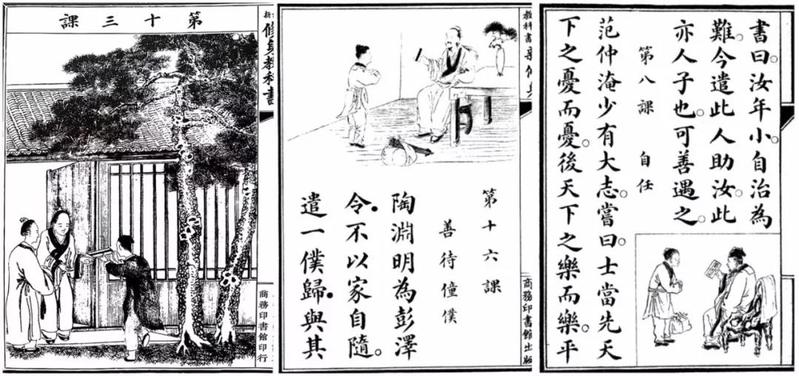 第十三課
修身教科書
商務印書館印行
教科書
商務印書館出版
第十六課
善待僮僕
陶淵明為彭澤
令。不以家自隨。
遣一僕歸。與其
書曰。汝年小。自治為
難。今遣此人助汝。此
亦人子也。可善遇之。
第八課 自任
范仲淹少有大志。嘗曰。士當先天
下之憂而憂。後天下之樂而樂。平